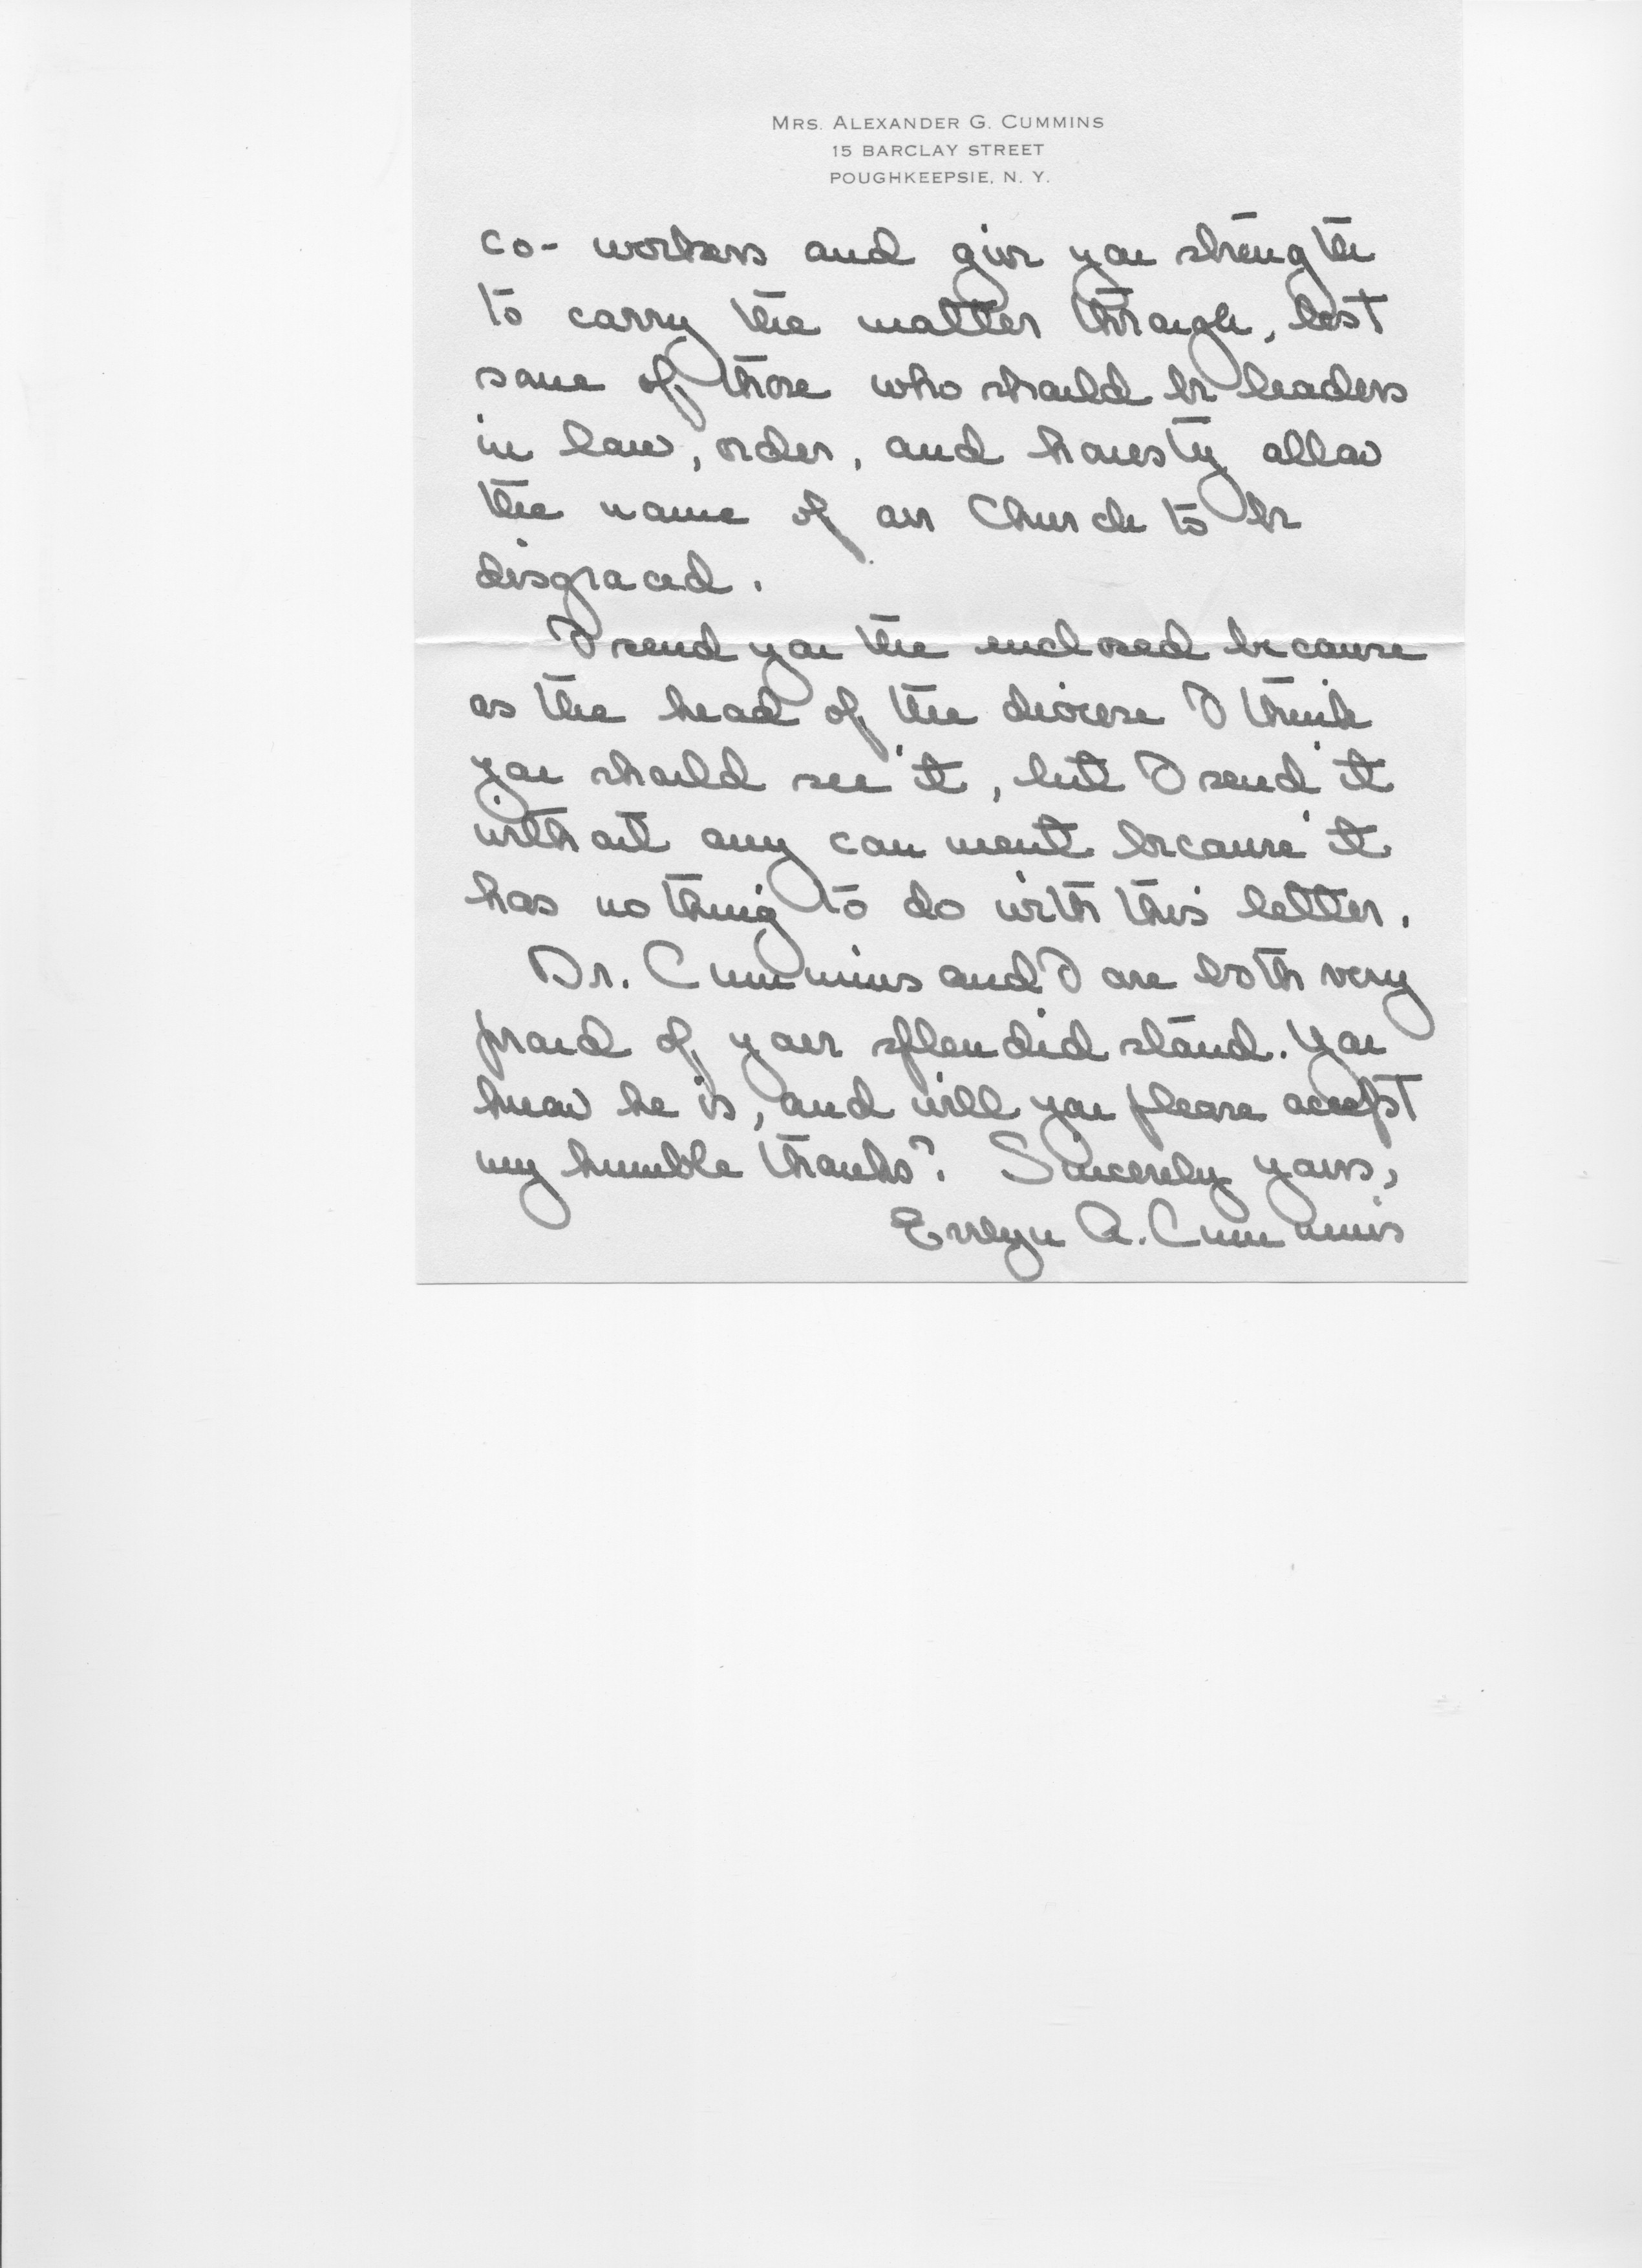 MRS. ALEXANDER G. CUMMINS
15 BARCLAY STREET
POUGHKEEPSIE, N. Y.
co-workers and give you strength
to carry the matter through, lest
some of those who should be leaders
in law, order, and honesty allow
the name of our Church to be
disgraced.
I send you the enclosed because
as the head of the diocese I think
you should see it, but I send it
without any comment because it
has nothing to do with this letter.
Dr. Cummins and I are both very
proud of your splendid stand. You
know he is, and will you please accept
my humble thanks? Sincerely yours,
Evelyn A. Cummins